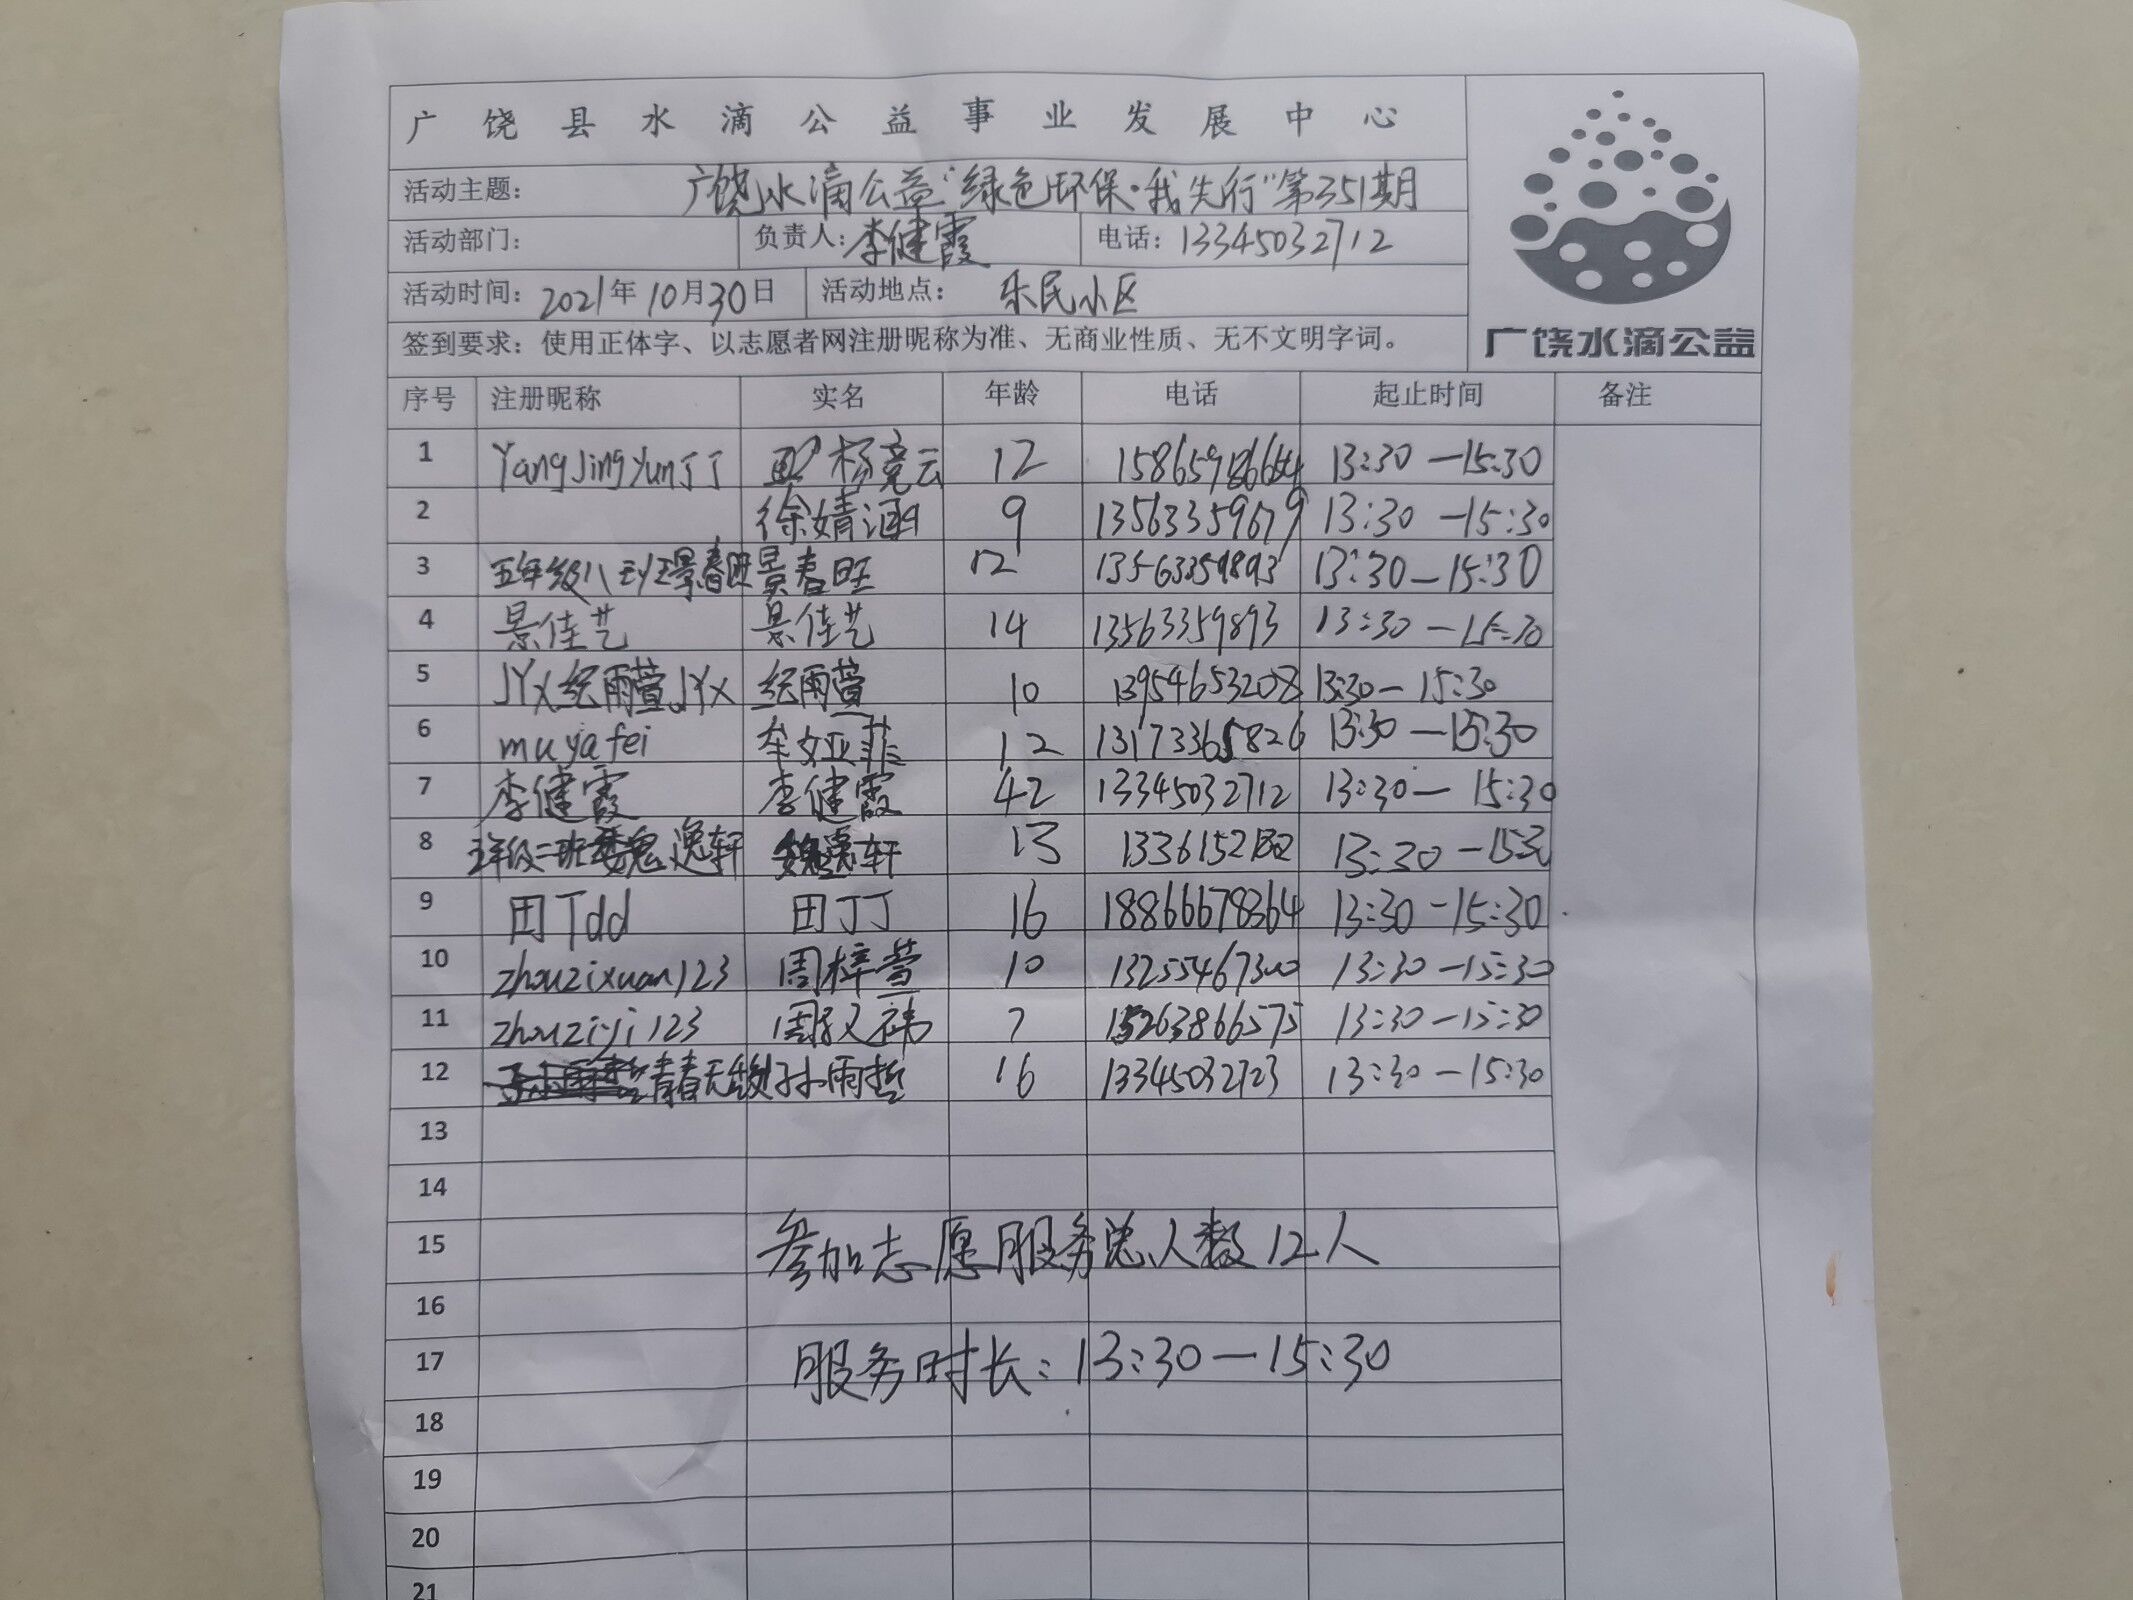 广饶县水滴公益事业发展中心
活动主题: 广饶水滴公益“绿色环保·我先行”第351期
活动部门: 负责人: 李健霞 电话: 13345032712
活动时间: 2021年10月30日 活动地点: 乐民小区
签到要求: 使用正体字、以志愿者网注册昵称为准、无商业性质、无不文明字词。
广饶水滴公益
序号 注册昵称 实名 年龄 电话 起止时间 备注
1 YangJingYun丁丁 杨竞云 12 13:30—15:30
2 徐婧涵 9 13563359679 13:30—15:30
3 五年级八班景春旺 景春旺 12 13563359893 13:30—15:30
4 景佳艺 景佳艺 14 13563359893 13:30—15:30
5 JYX纪雨萱JYX 纪雨萱 10 13954653208 13:30—15:30
6 muyafei 牟娅菲 12 13173365826 13:30—15:30
7 李健霞 李健霞 42 13345032712 13:30—15:30
8 五年级二班魏逸轩 魏逸轩 13 13:30—15:30
9 田Tdd 田丁丁 16 18866678364 13:30—15:30
10 zhouzixuan123 周梓萱 10 13255467300 13:30—15:30
11 zhouziyi123 7 15263866575 13:30—15:30
12 青春无敌 孙雨哲 16 13345032723 13:30—15:30
13
14
15 参加志愿服务总人数12人
16
17 服务时长: 13:30—15:30
18
19
20
21